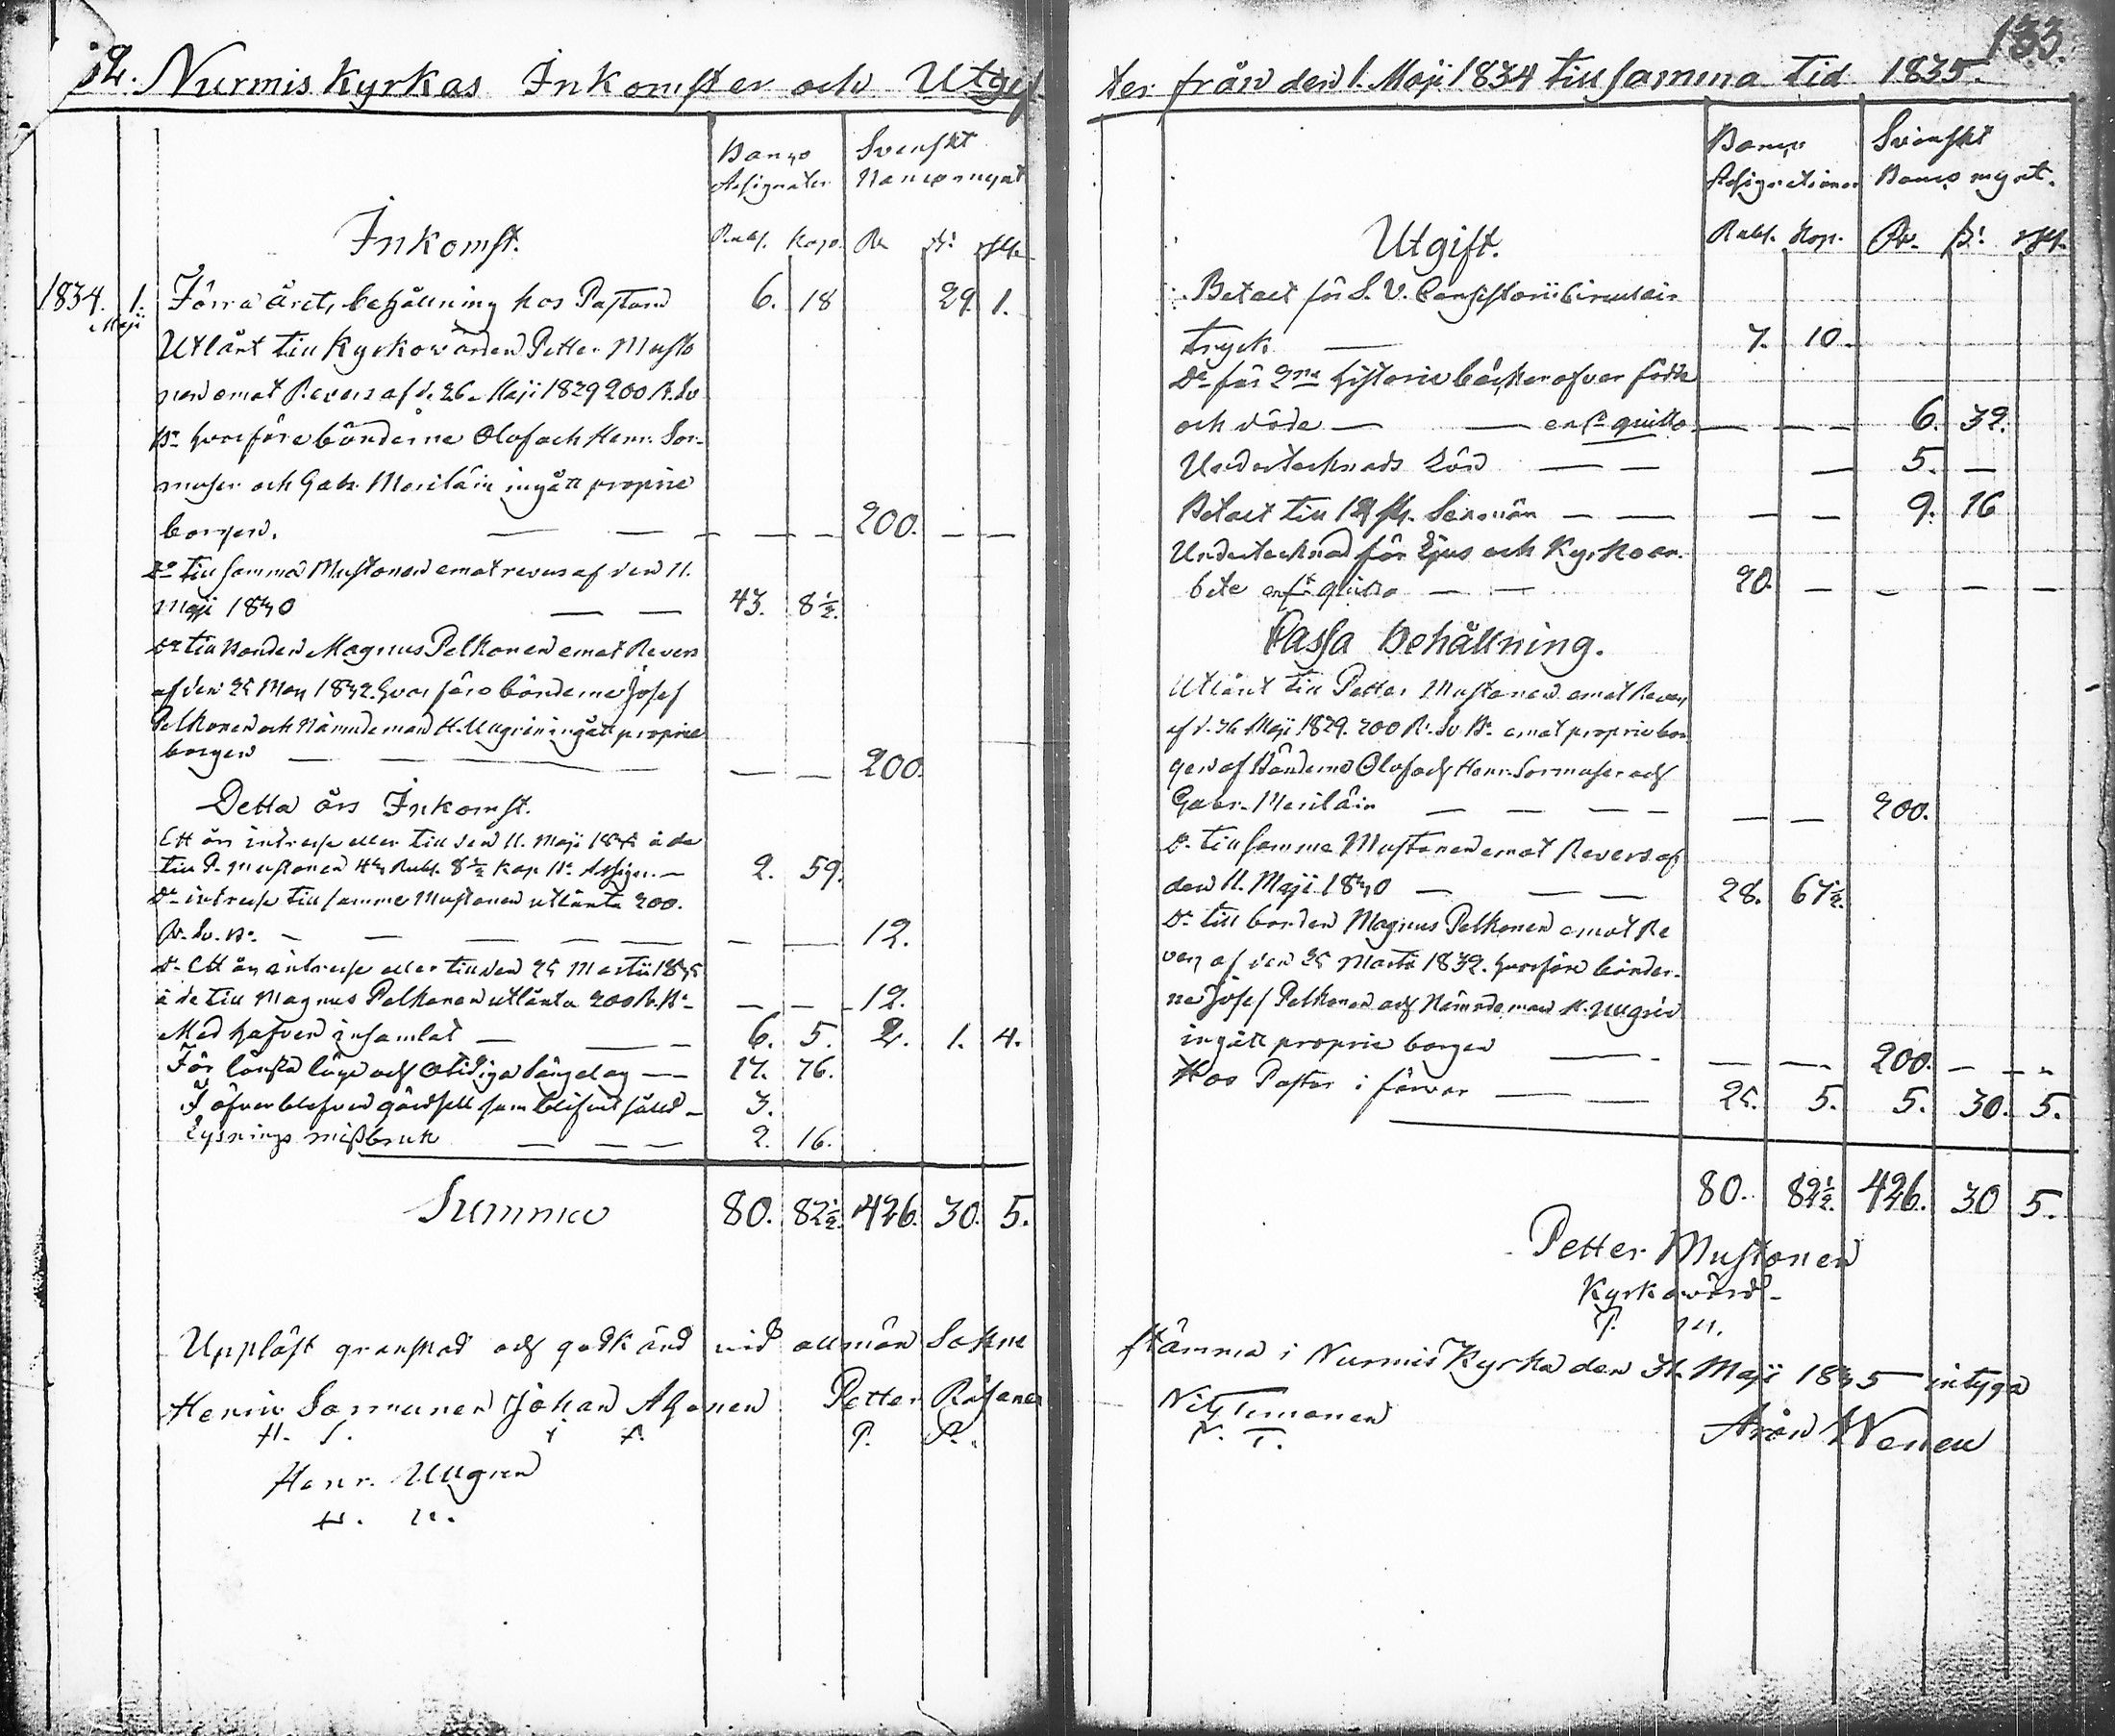 Nurmis Kyrkas Inkomster och Utgif-
Banco Svenskt
Assignater Bancomynt
Inkomst. Rubl. Kop. Rr. sk. rst.
1834. 1. Maji Förra årets behållning hos Pastorn 6. 18 29. 1.
Utlånt till Kyrkowärden Petter Musto
nen emot Revers af d. 26 Maji 1829 200 R. Sv
Bo hvarföre bönderne Olof och Henr. Sor-
muser och Gabr. Meriläin ingått proprie
borgen. — — — — — 200. — —
Do till samma Mustonen emot revers af den 11.
Maji 1830 — — 43. 8½.
Do till Bonden Magnus Pelkonen emot Revers
af den 25 1832. hvarföre bönderne Josef
Pelkonen och Nämndeman H. Ungrin ingått proprie
borgen — — — — — 200.
Detta års Inkomst.
Ett års intresse eller till den 11. Maji å de
till P. Mustonen 43 Rubl. 8½ Kop. Bo Assign. — 2. 59.
Do intresse till samme Mustonen utlånte 200.
Rr. Sv. Bo. — — — — — — — 12.
Do Ett års intresse eller till den 25 Martii 1835
å de till Magnus Pelkonen utlånta 200 R. Bo — — — 12.
Med hafven insamlat — — — 6. 5. 2. 1. 4.
För långa lüge och otidiga — 17. 76.
I öfverblefven som blifvit såld — 3.
Lysnings missbruk — — — 2. 16.
Summa 80. 82½. 426. 30. 5.
Uppläst granskad och godkänd vid allmän Sokne
Henric Sormunen Johan Ahonen Petter Räsänen
H. S. I A. P. R.
Henr. Ungren
H. U.
133.
ter från den 1. Maji 1834 till samma tid 1835.
Banco Svenskt
Assignationer Banco mynt.
Utgift. Rubl. Kop. Rr. sk. rst.
Betalt för S. V. Consistorii Circulair
tryck — 7. 10.
Do för 2ne historie böcker öfver födde
och döde — — enl. quitto — — — 6. 32.
Undertecknads Lön — — — 5. —
Betalt till — — — — 9. 16
Undertecknad för Ljus och Kyrko ar-
bete enl. quitto — — 20. — — — —
Cassa Behållning.
Utlånt till Petter Mustonen emot Revers
af d. 26 Maji 1829. 200 R. Sv Bo. emot proprie bor-
gen af Bönderne Olof och Henr. Sormuser och
Gabr. Meriläin — — — — — — 200.
Do till samme Mustonen emot Revers af
den 11. Maji 1830 — — — 28. 67½.
Do till bonden Magnus Pelkonen emot Re
vers af den 25 Martii 1832. hvarföre bönder-
ne Josef Pelkonen och Nämndeman H. Ungrin
ingått proprie borgen — — — 200. — — —
Hos Pastor i förvar — — 25. 5. 5. 30. 5.
80. 82½. 426. 30 5.
Petter Mustonen
Kyrkowärd
P. M.
stämma i Nurmis Kyrka den 31. Maji 1835 intyga
Nils Timonen Arån Wenen
N. T.